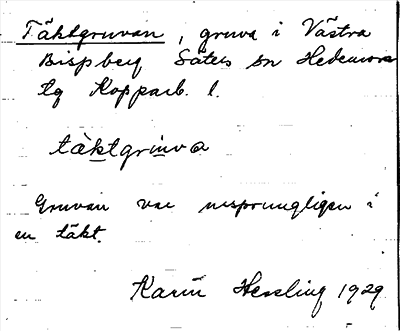 Täktgruvan, gruva i Västra
Bispberg Säters sn Hedemora
tg Kopparb. l.
täktgruva
Gruvan var ursprungligen i
en täkt.
Karin Hessling 1929